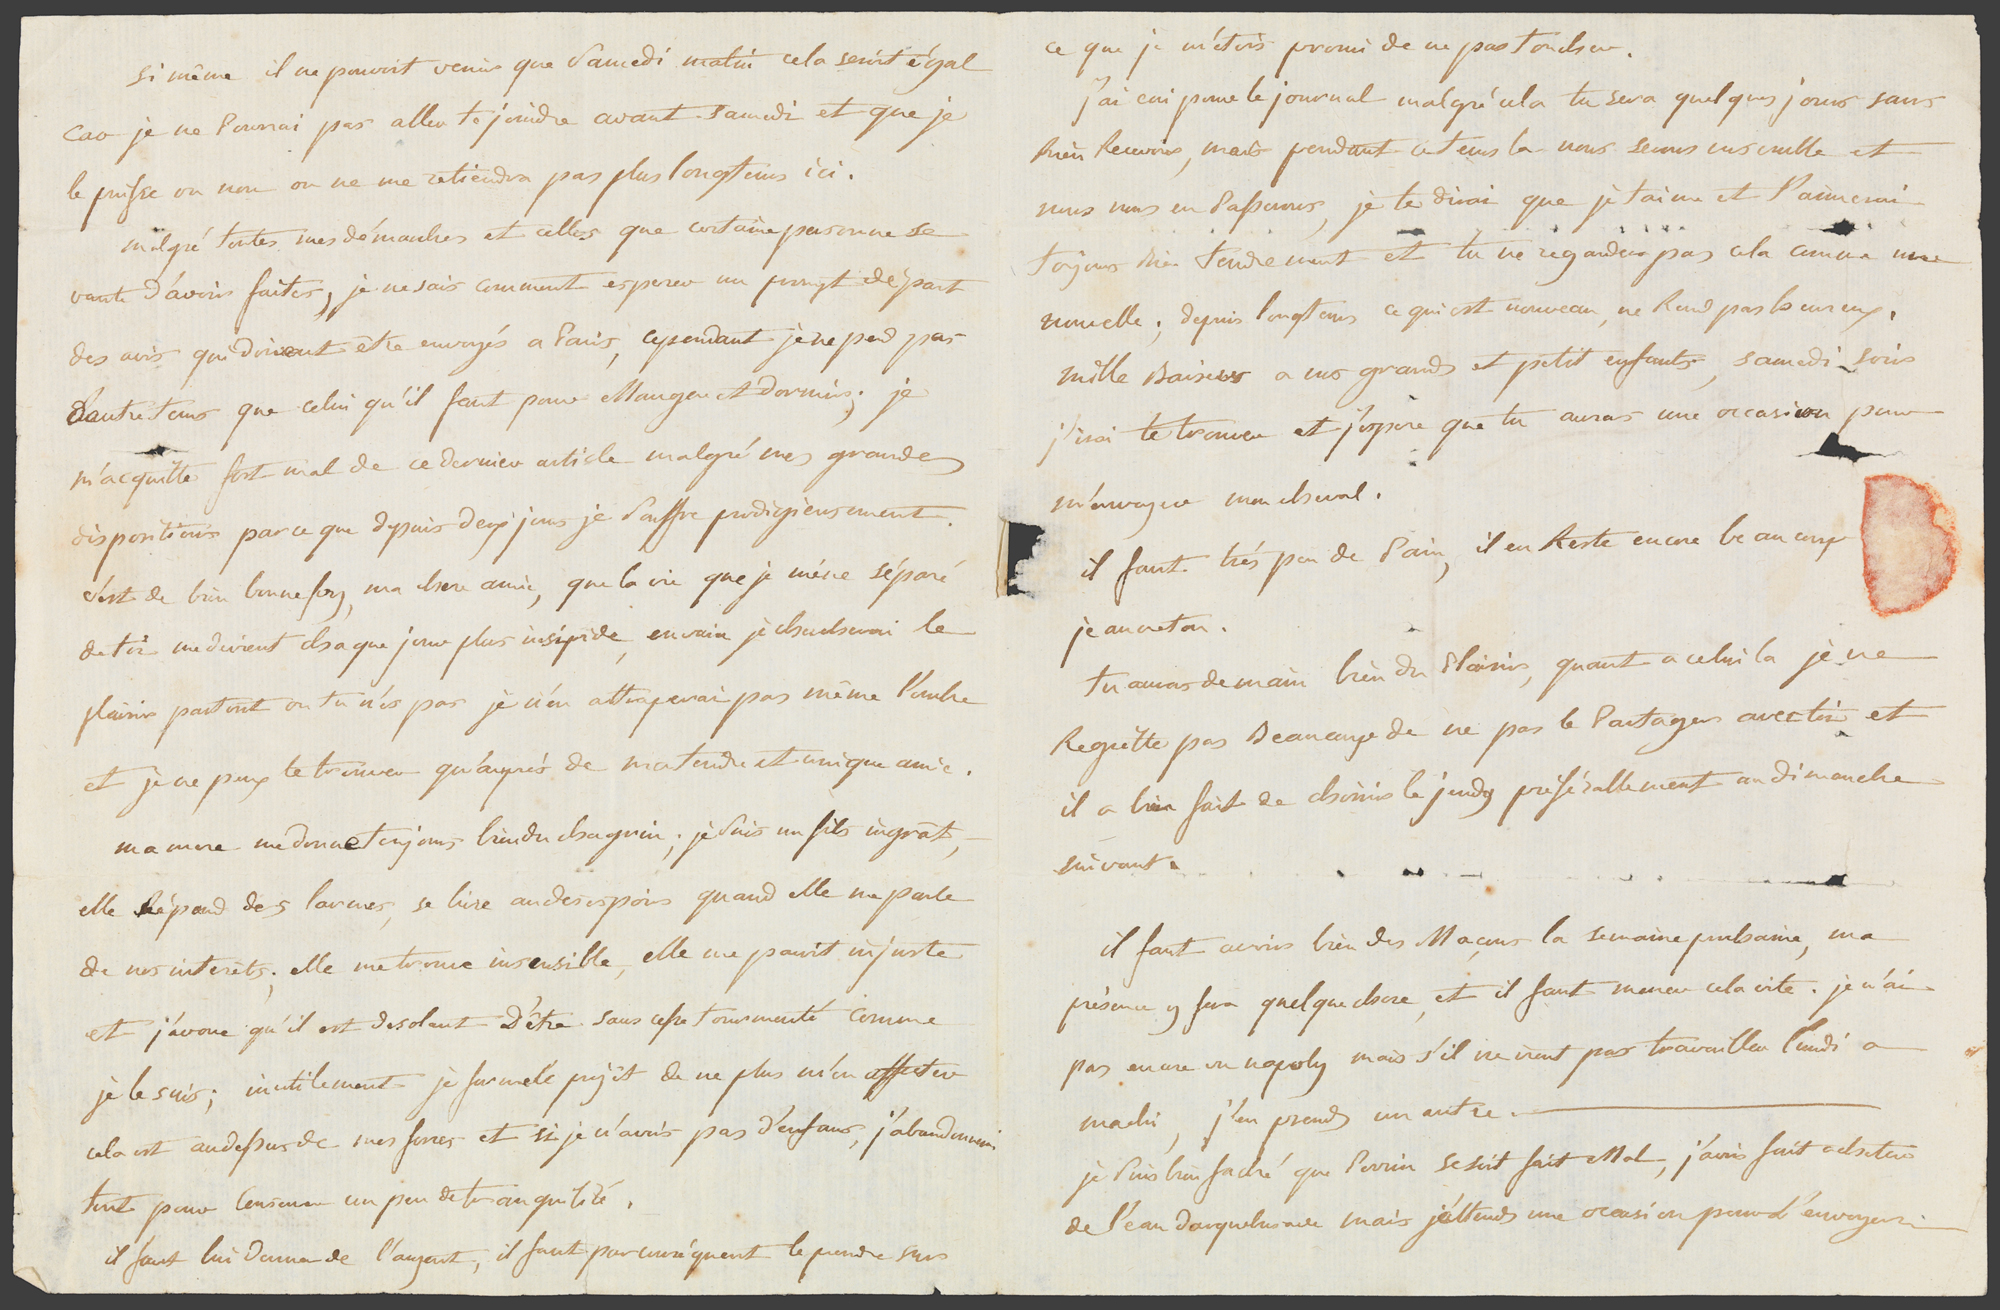 si même il ne pouvoit venir que Samedi matin cela seroit égal
car je ne Pourrai pas aller te joindre avant Samedi et que je
le puisse ou non on ne me retiendra pas plus longtems ici.
malgré toutes mes démarches et celles que certaine personne se
vante d'avoir faites, je ne sais comment esperer un prompt départ
des avis qui doivent etre envoyés a Paris, cependant je ne perd pas
d'autre tems que celui qu'il faut pour Manger et Dormir; je
m'acquitte fort mal de ce dernier article malgré mes grandes
dispositions parce que depuis deux jours je Souffre prodigieusement.
c'est de bien bonne foy, ma chere amie, que la vie que je mène séparé
de toi me devient chaque jour plus insipide, en vain je chercherai le
plaisir partout ou tu n'és pas je n'en attraperai pas même l'ombre
et je ne peux le trouver qu'auprés de ma tendre et unique amie.
ma mere me donne toujours bien du chagrin; je Suis un fils ingrât,
elle Répand des larmes, se livre au desespoir quand elle me parle
de nos interêts; elle me trouve insensible, elle me paroit injuste
et j'avoue qu'il est desolant D'être sans cesse tourmenté comme
je le suis; inutilement je forme le projêt de ne plus m'en affecter
cela est au dessus de mes forces et si je n'avois pas d'enfans, j'abandonnerois
tout pour Conserver un peu de tranquilité.
il faut lui donner de l'argent, il faut par conséquent le prendre sur
ce que je m'étois promi de ne pas toucher.
j'ai écri pour le journal malgré cela tu sera quelques jours sans
Rien Recevoir, mais pendant ce tems la nous serons ensemble et
nous nous en Passerons, je te dirai que je t'aime et t'aimerai
toujours bien tendrement et tu ne regardera pas cela comme une
nouvelle; depuis longtems ce qui est nouveau, ne Rend pas heureux.
mille Baisers a nos grands et petit enfants, samedi soir
j'irai te trouver et j'espere que tu auras une occasion pour
m'envoyer mon cheval.
il faut trés peu de Pain, il en Reste encore beaucoup
jeanneton.
tu auras demain bien du Plaisir, quant a celui la je ne
Regrette pas Beaucoup de ne pas le Partager avec toi et
il a bien fait de choisir le jeudy préférablement au dimanche
suivant.
il faut avoir bien des Maçons la semaine prochaine, ma
présence y fera quelque chose, et il faut mener cela vite. je n'ai
pas encore vu mais s'il ne vient pas travailler lundi a
j'en prends un autre.
je Suis bien faché que Perrin se soit fait Mal, j'avois fait acheter
de l'eau d'arquebusade mais j'attends une occasion pour l'envoyer.